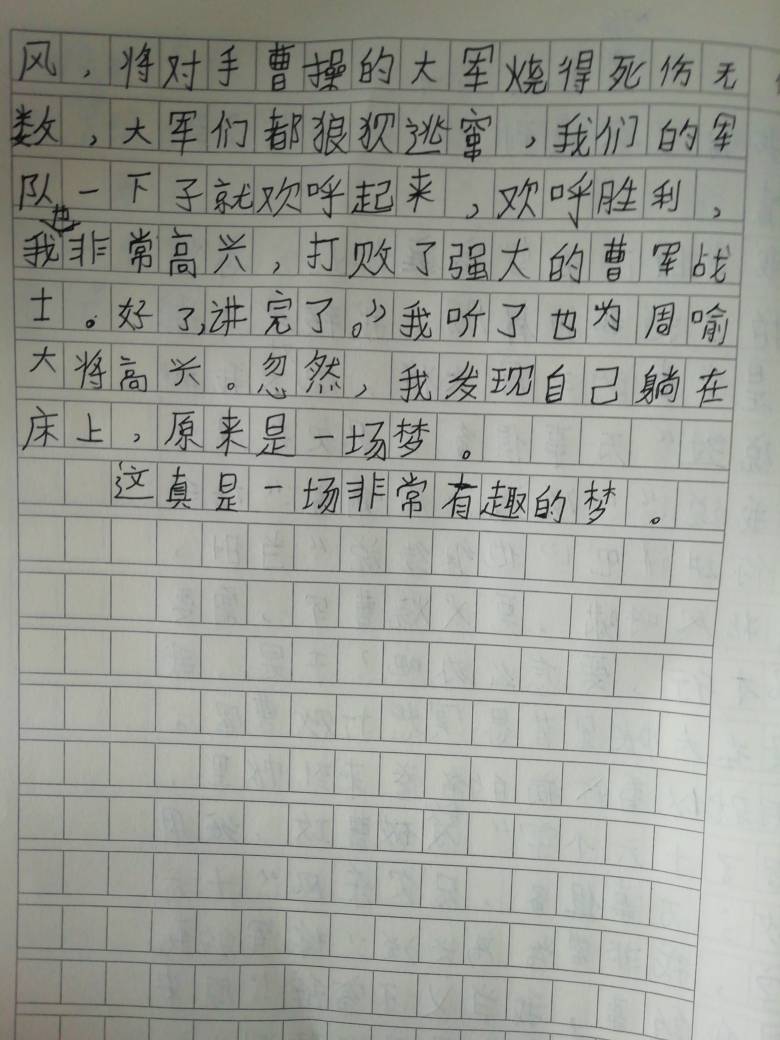 风，将对手曹操的大军烧得死伤无
数，大军们都狼狈逃窜，我们的军
队一下子就欢呼起来，欢呼胜利，
我也非常高兴，打败了强大的曹军战
士。好了,讲完了。”我听了也为周喻
大将高兴。忽然，我发现自己躺在
床上，原来是一场梦。
这真是一场非常有趣的梦。